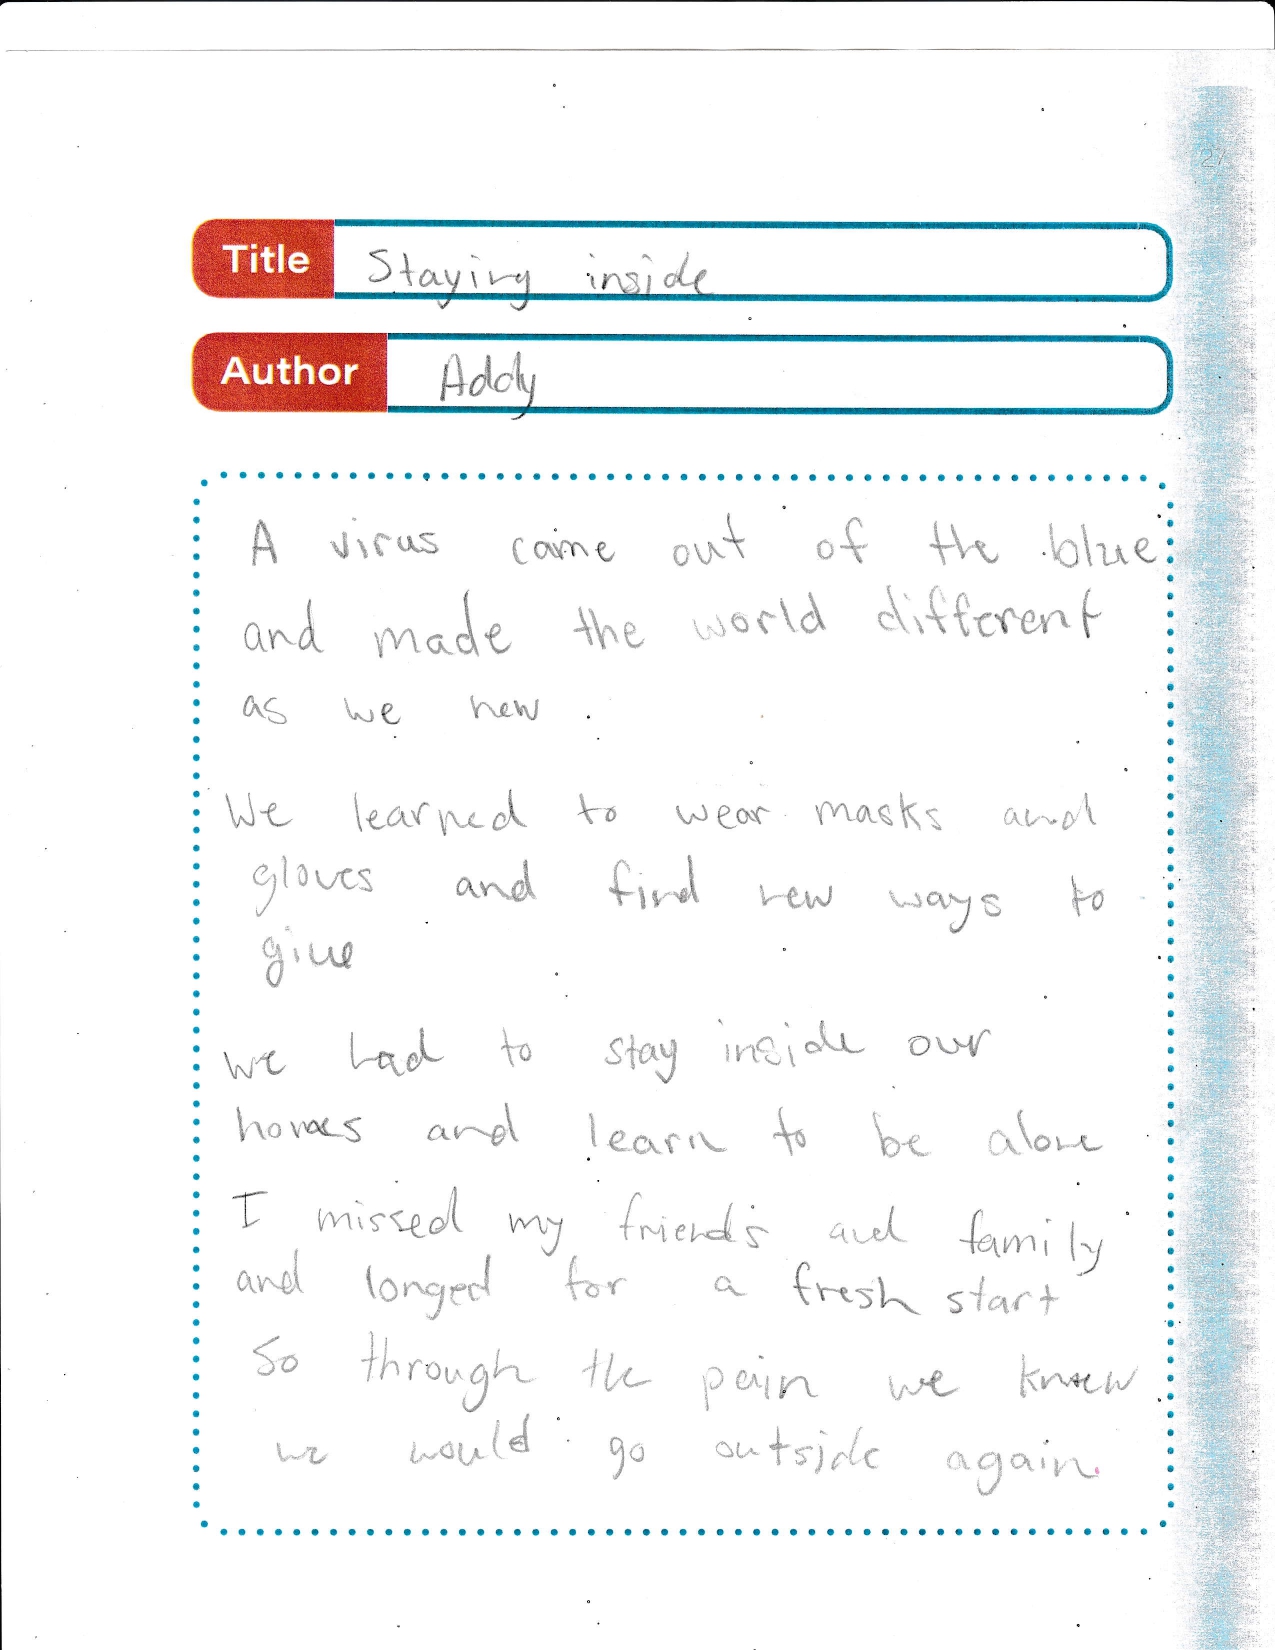 27
Title Staying inside
Author Addy
A virus came out of the blue
and made the world different
as we new .
We learned to wear masks and
gloves and find new ways to
give
we had to stay inside our
homes and learn to be alone
I missed my friends and family
and longed for a fresh start
So through the pain we knew
we would go outside again.